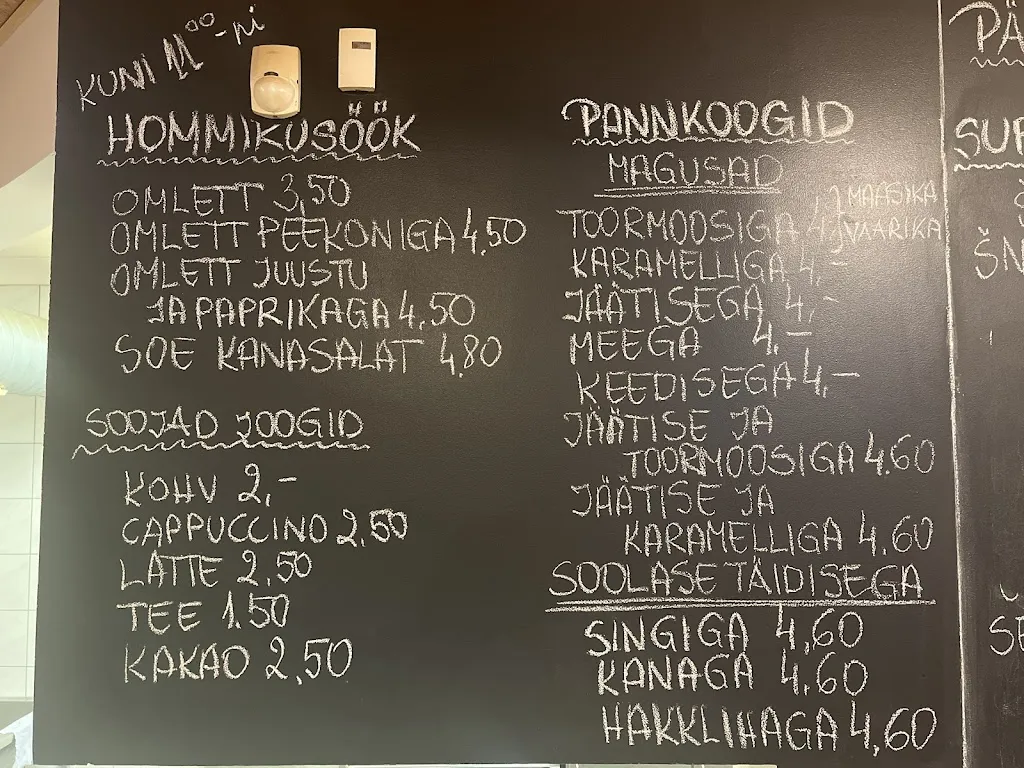 KUNI 11⁰⁰-ni
HOMMIKUSÖÖK
OMLETT 3,50
OMLETT PEEKONIGA 4,50
OMLETT JUUSTU
JA PAPRIKAGA 4,50
SOE KANASALAT 4,80
SOOJAD JOOGID
KOHV 2,-
CAPPUCCINO 2,50
LATTE 2,50
TEE 1.50
KAKAO 2,50
PANNKOOGID
MAGUSAD
TOORMOOSIGA 4,- MAASIKA
VAARIKA
KARAMELLIGA 4,-
JÄÄTISEGA 4,-
MEEGA 4,-
KEEDISEGA 4,-
JÄÄTISE JA
TOORMOOSIGA 4.60
JÄÄTISE JA
KARAMELLIGA 4.60
SOOLASE TÄIDISEGA
SINGIGA 4,60
KANAGA 4.60
HAKKLIHAGA 4,60
PÄ
SUP
ŠN
SE